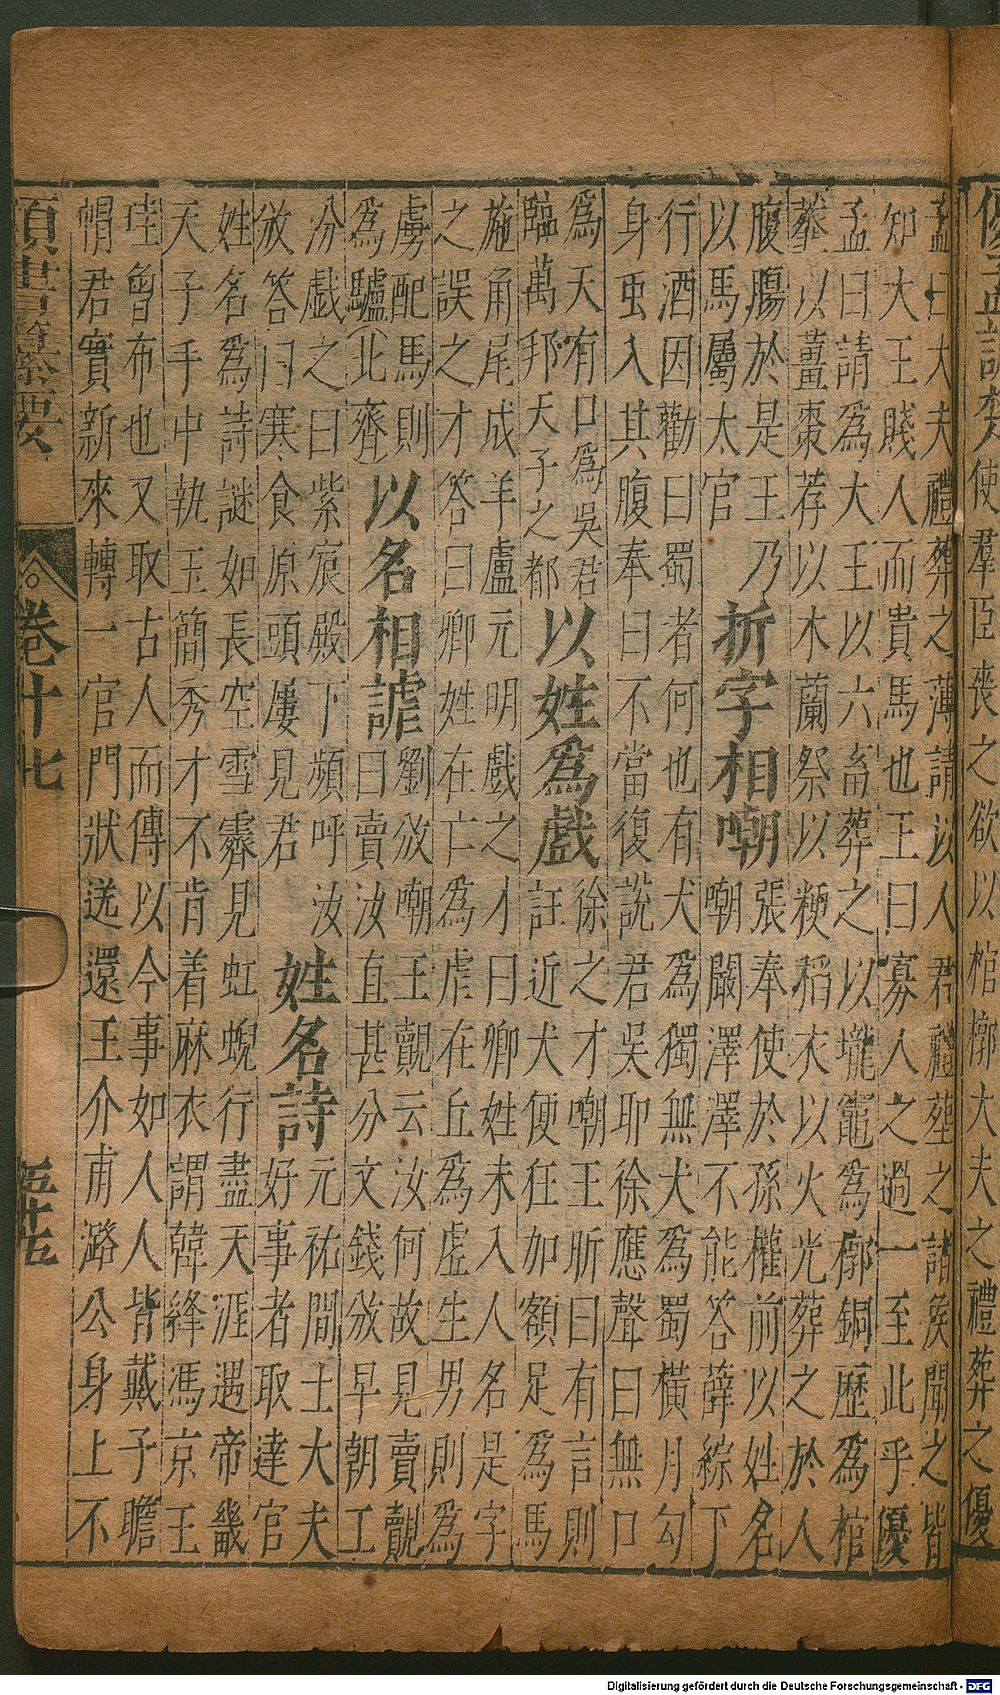 使羣臣喪之欲以棺槨大夫之禮葬之優
孟曰大夫禮葬之薄請以人君禮葬之諸侯聞之皆
知大王賤人而貴馬也王曰寡人之過一至此乎優
孟曰請為大王以六畜葬之以壠竈為槨銅歷為棺
葬以薑棗荐以木蘭祭以粳稻衣以火光葬之於人
腹膓於是王乃
以馬屬太官
折字相嘲
張奉使於孫權前以姓名
嘲闞澤澤不能答薛綜下
行酒因勸曰蜀者何也有犬為獨無犬為蜀橫月勾
身虫入其腹奉曰不當復說君吳耶徐應聲曰無口
為天有口為吳君
臨萬邦天子之都
以姓爲戲
徐之才嘲王昕曰有言則
註近犬便狂加額足為馬
施角尾成羊盧元明戲之才曰卿姓未入人名是字
之誤之才答曰卿姓在亡為虐在丘為虗生男則為
虜配馬則
為驢(北齊)
以名相謔
劉攽嘲王覿云汝何故見賣覿
曰賣汝直甚分文錢攽早朝工
汾戲之曰紫宸殿下頻呼汝
攽答曰寒食原頭屢見君
姓名詩
元祐間士大夫
好事者取達官
姓名為詩謎如長空雪霽見虹蜺行盡天涯遇帝畿
天子手中執玉簡秀才不肯着麻衣謂韓絳馮京王
珪曾布也又取古人而傳以今事如人人皆戴子瞻
帽君實新來轉一官門狀送還王介甫潞公身上不
類書纂要 卷十七 五十五
Digitalisierung gefördert durch die Deutsche Forschungsgemeinschaft - DFG